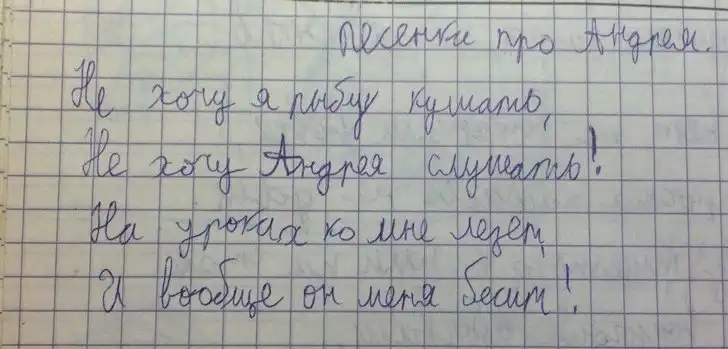 песенки про Андрея.
Не хочу я рыбу кушать,
Не хочу Андрея слушать!
На уроках ко мне лезет,
И вообще он меня бесит!